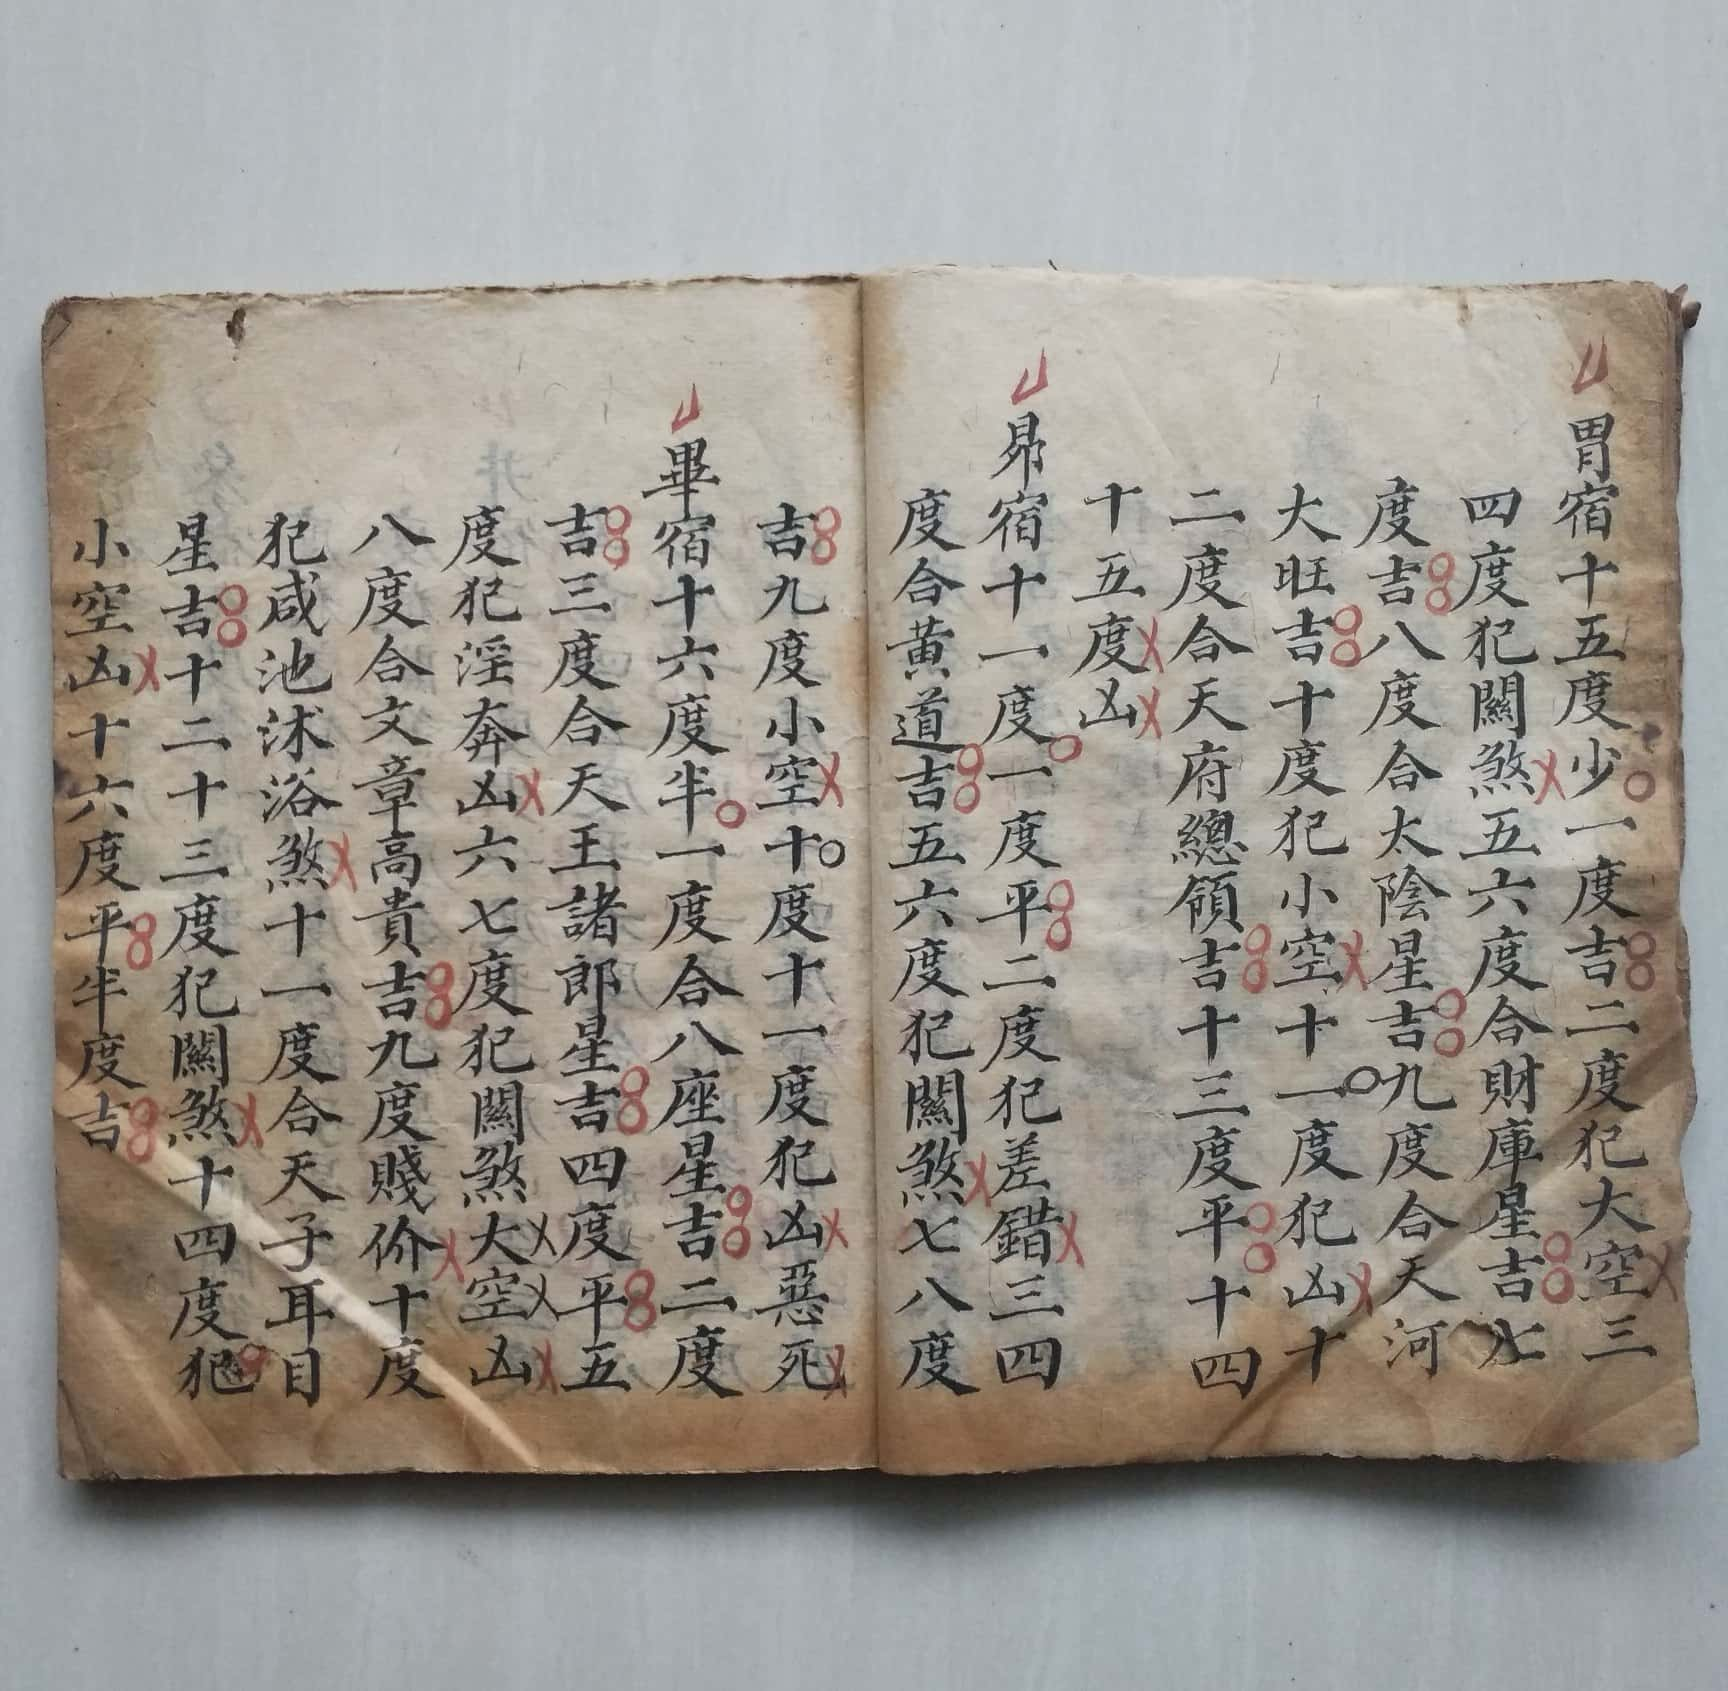 胃宿十五度少一度吉二度犯大空三
四度犯關煞五六度合財庫星吉七
度吉八度合太陰星吉九度合天河
大旺吉十度犯小空十一度犯凶十
二度合天府總領吉十三度平十四
十五度凶
昴宿十一度一度平二度犯差錯三四
度合黃道吉五六度犯關煞七八度
吉九度小空十度十一度犯凶惡死
畢宿十六度半一度合八座星吉二度
吉三度合天王諸郎星吉四度平五
度犯淫奔凶六七度犯關煞大空凶
八度合文章高貴吉九度賤价十度
犯咸池沭浴煞十一度合天子耳目
星吉十二十三度犯關煞十四度犯
小空凶十六度平半度吉